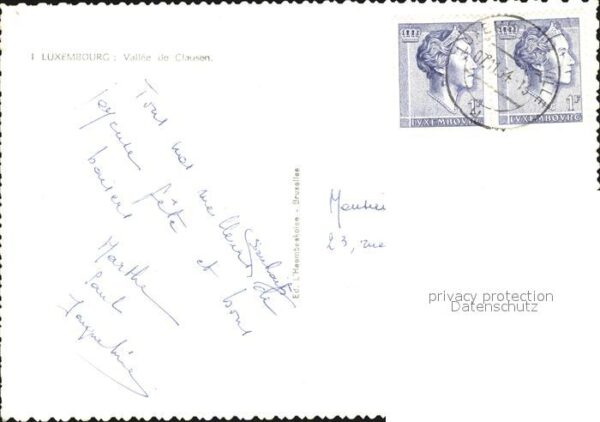 1 LUXEMBOURG : Vallée de Clausen.
Tous nos meilleurs
souhaits de
joyeuse fête et bons
baisers
Marthe
Paul
Jacqueline
Ed. L'Heembeekoise - Bruxelles
LUXEMBOURG
1F
LUXEMBOURG
Monsieur
23, rue
privacy protection
Datenschutz